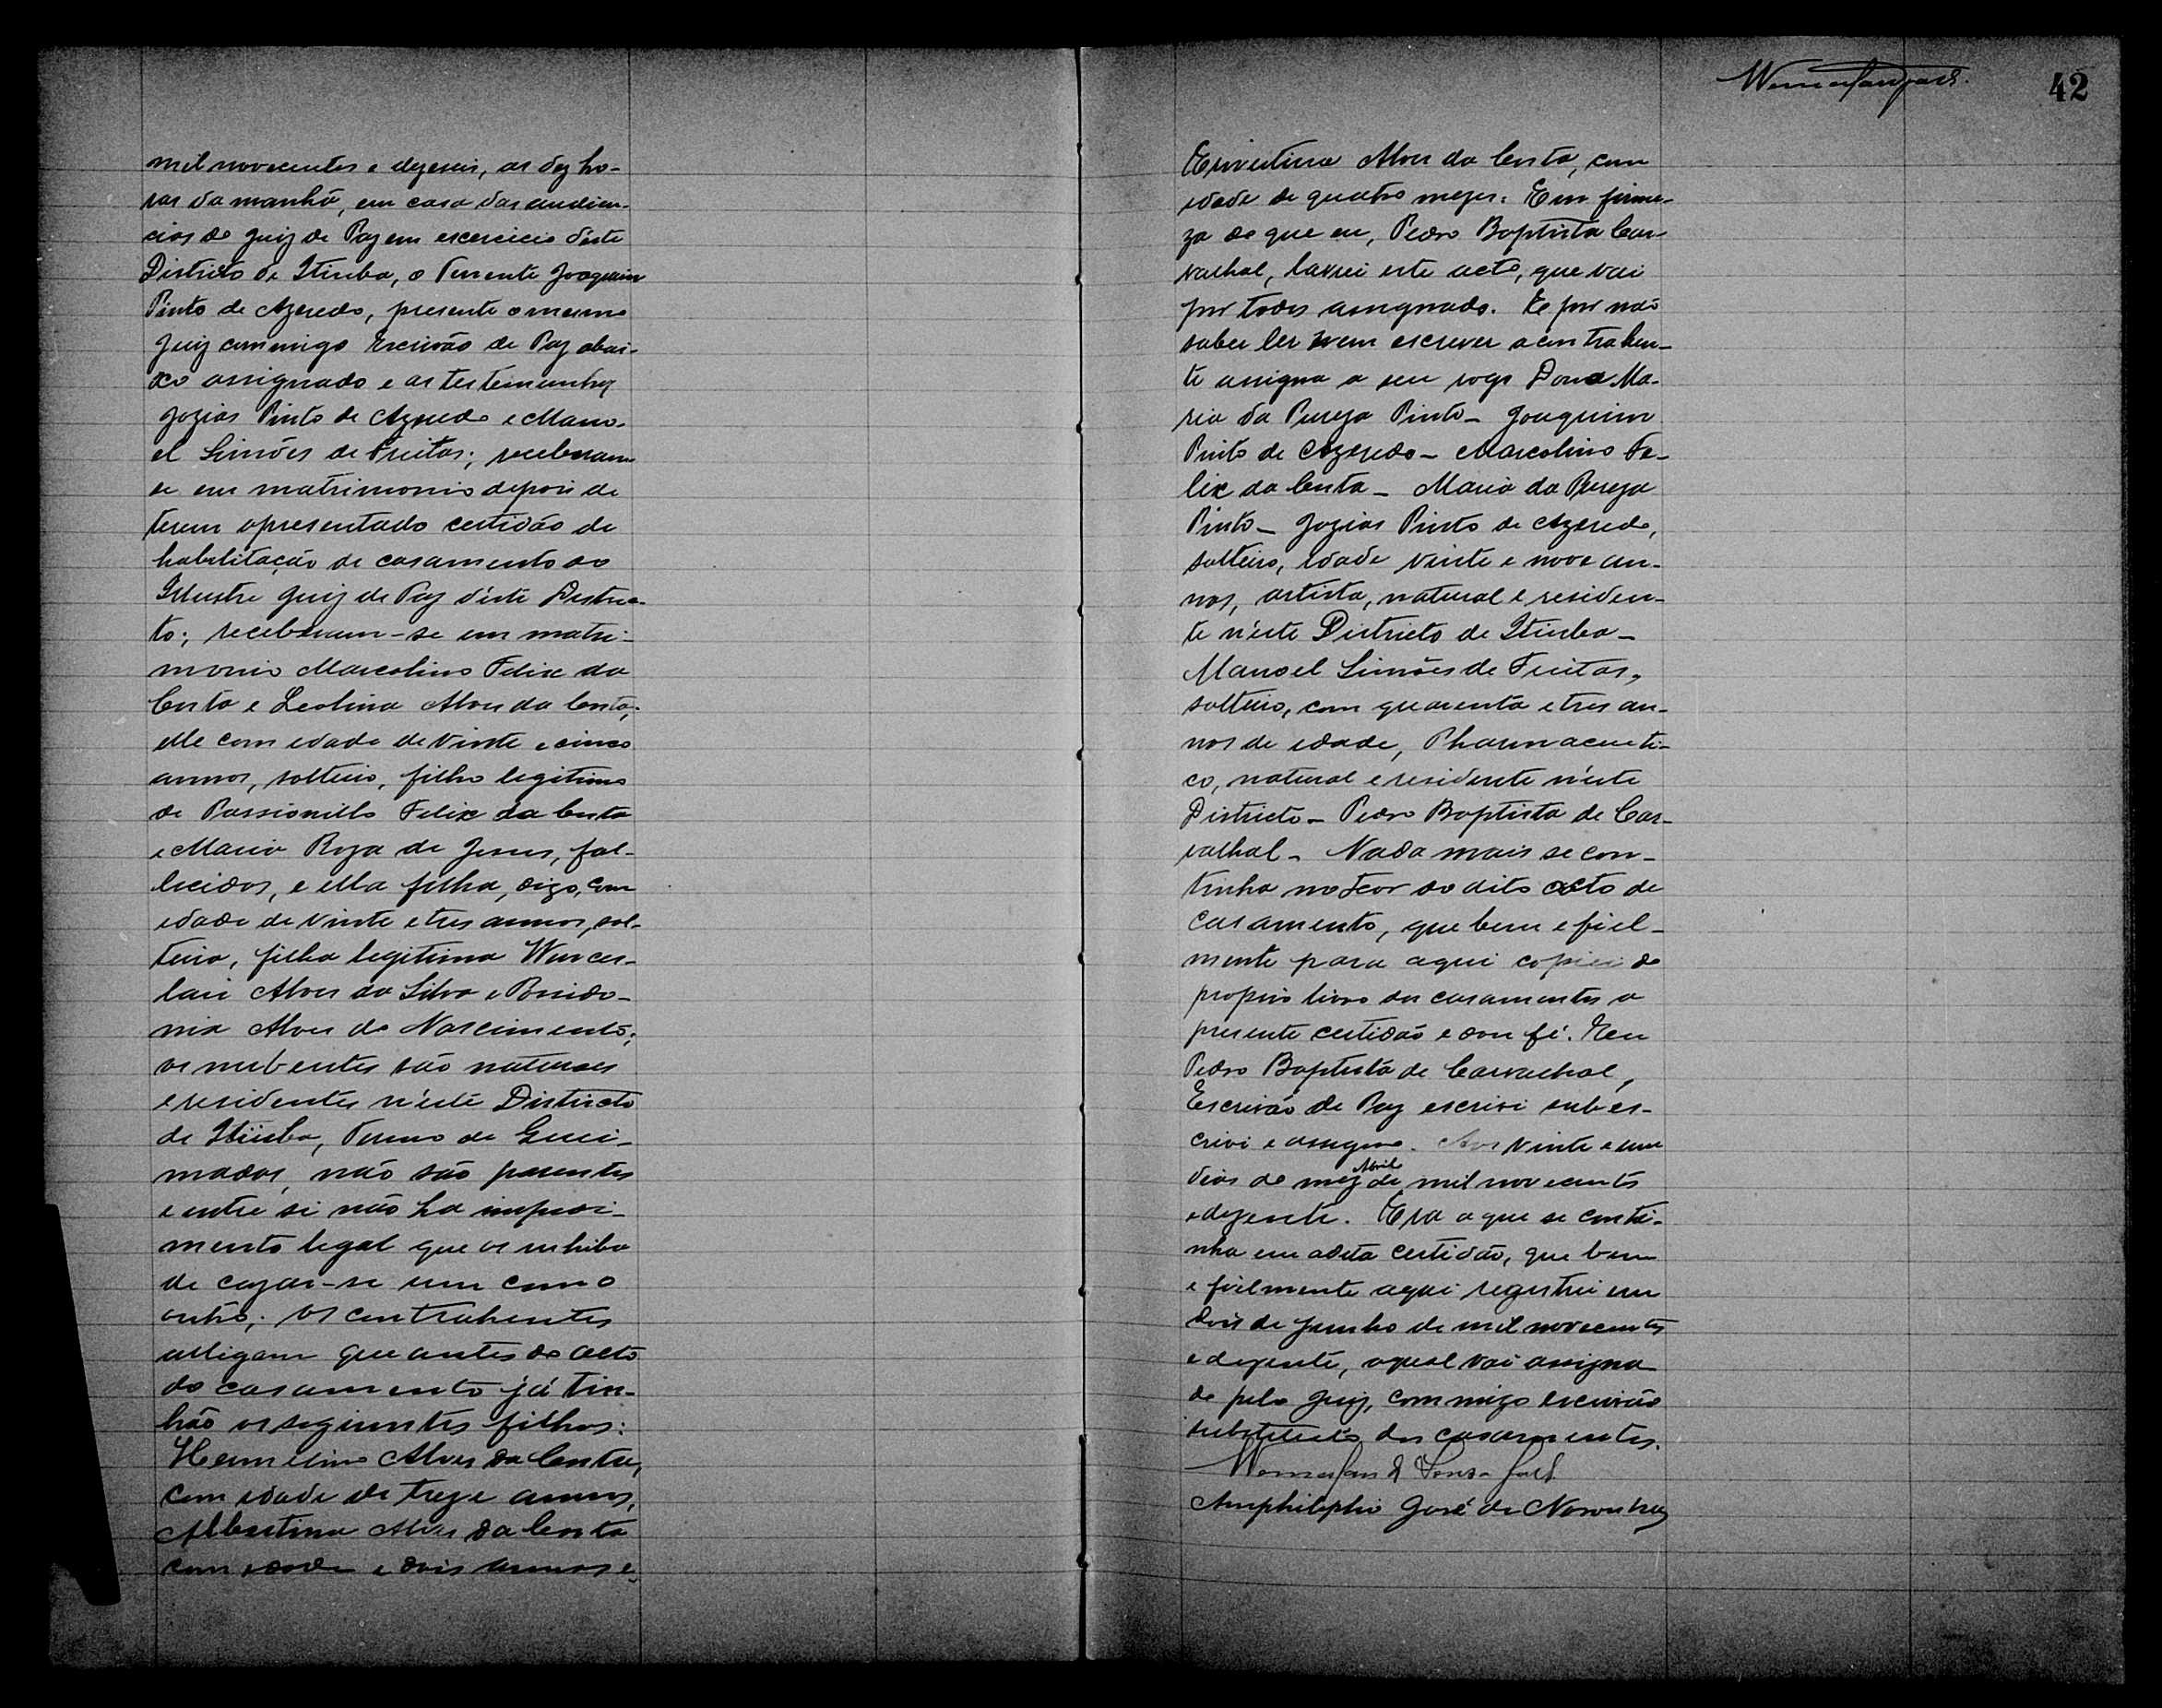 mil novecentos e dezeseis, as dez ho-
ras da manhã, em casa das audien-
cias do Juiz de Paz em excercicio d'este
Districto de Itiuba, o Tenente Joaquim
Pinto de Azeredo, presente o mesmo
Juiz commigo Escrivão de Paz abai-
xo assignado e as testemunhas
Jozias Pinto de Azeredo e Mano-
el Simões de Freitas; receberam
se em matrimonio depois de
terem apresentado certidão de
habilitação de casamento ao
Illustre Juiz de Paz d'este Distric-
to; receberam-se em matri-
monio Marcolino Felix da
Costa e Leolina Alves da Costa;
elle com edade de vinte e cinco
annos, solteiro, filho legitimo
de Passionillo Felix da Costa
e Maria Roza de Jesus, fal-
lecidos, e ella filha, digo, com
edade de vinte e tres annos, sol-
teira, filha legitima Wences-
lau Alves da Silva e Possido-
nia Alves do Nascimento;
os nubentes são naturaes
e residentes n'este Districto
de Itiuba, Termo de Quei-
madas, não são parentes
e entre si não ha impedi-
mento legal que os inhiba
de cazar-se um com o
outro; os contrahentes
alligam que antes do acto
do casamento já tin-
hão os seguintes filhos:
Hermelino Alves da Costa,
com edade de treze annos,
Albertina Alves da Costa
com edade e dois annos e
42
Alves da Costa, com
edade de quatro mezes. E em firme-
za do que eu, Pedro Baptista Car-
valhal, lavrei este acto, que vai
por todos assignado. E por não
saber ler nem escrever a contrahen-
te assigna a seu rogo Dona Ma-
ria da Pureza Pinto - Joaquim
Pinto de Azeredo - Marcolino Fe-
lix da Costa - Maria da Pureza
Pinto - Jozias Pinto de Azeredo,
solteiro, edade vinte e nove an-
nos, artista, natural e residen-
te n'este Districto de Itiuba -
Manoel Simões de Freitas,
solteiro, com quarenta e tres an-
nos de edade, Pharmaceuti-
co, natural e residente n'este
Districto - Pedro Baptista de Car-
valhal - Nada mais se con-
tinha no teor do dito acto de
casamento, que bem e fiel-
mente para aqui copiei do
proprio livro dos casamentos a
presente certidão e dou fé. Eeu
Pedro Baptista de Carvalhal,
Escrivão de Paz escrivi subes-
crivi e assigno. Aos vinte e um
dias do mez de Abril de mil novecentos
e dezesete. Era o que se conti-
nha em a dita certidão, que bem
e fielmente aqui registrei em
dois de Junho de mil novecentos
e dezesete, o qual vai assigna
do pelo Juiz, commigo escrivão
substituto dos casamentos.
Amphilophio José de Noronha